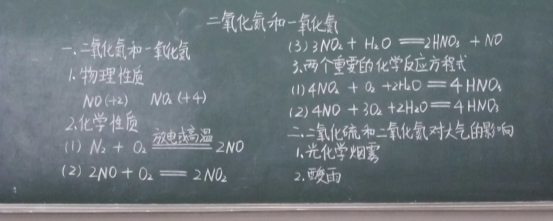 二氧化氮和一氧化氮
一.二氧化氮和一氧化氮
1.物理性质
NO(+2) NO₂(+4)
2.化学性质
(1) N₂ + O₂ 放电或高温 ═══ 2NO
(2) 2NO + O₂ ═══ 2NO₂
(3) 3NO₂ + H₂O ═══ 2HNO₃ + NO
3.两个重要的化学反应方程式
(1) 4NO₂ + O₂ + 2H₂O ═══ 4HNO₃
(2) 4NO + 3O₂ + 2H₂O ═══ 4HNO₃
二.二氧化硫和二氧化氮对大气的影响
1.光化学烟雾
2.酸雨